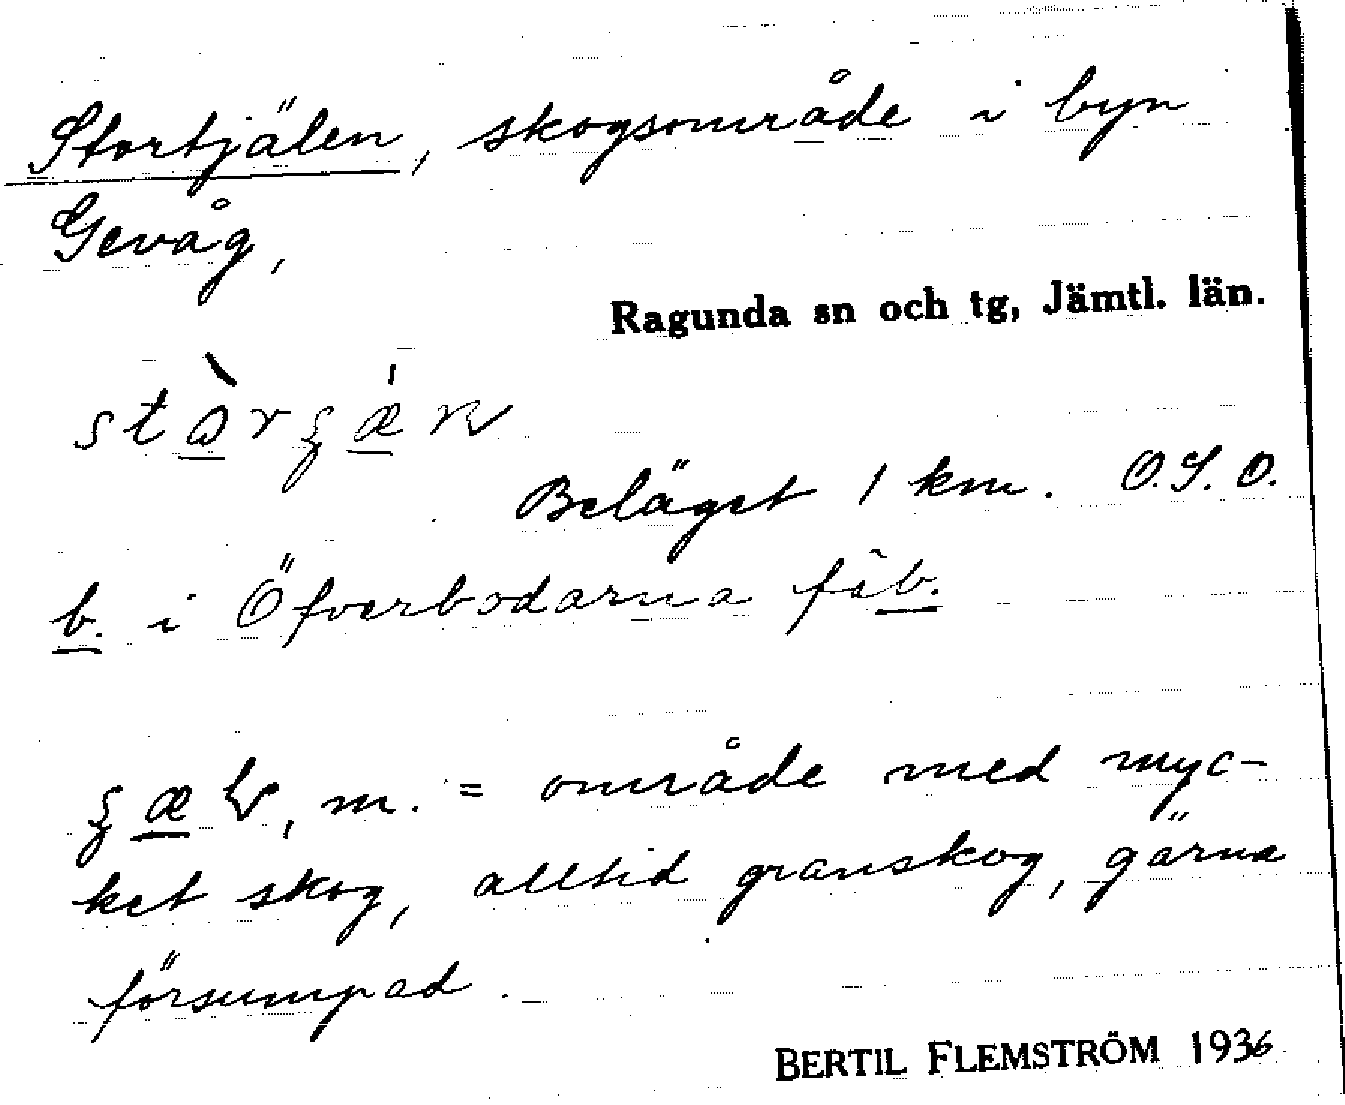 Stortjälen, skogsområde i byn
Gevåg,
Ragunda sn och tg, Jämtl. län.
Beläget 1 km. O.S.O.
b. i Öfverbodarna fäb.
m. = område med myc-
ket skog, alltid granskog, gärna
försumpad.
BERTIL FLEMSTRÖM 1936